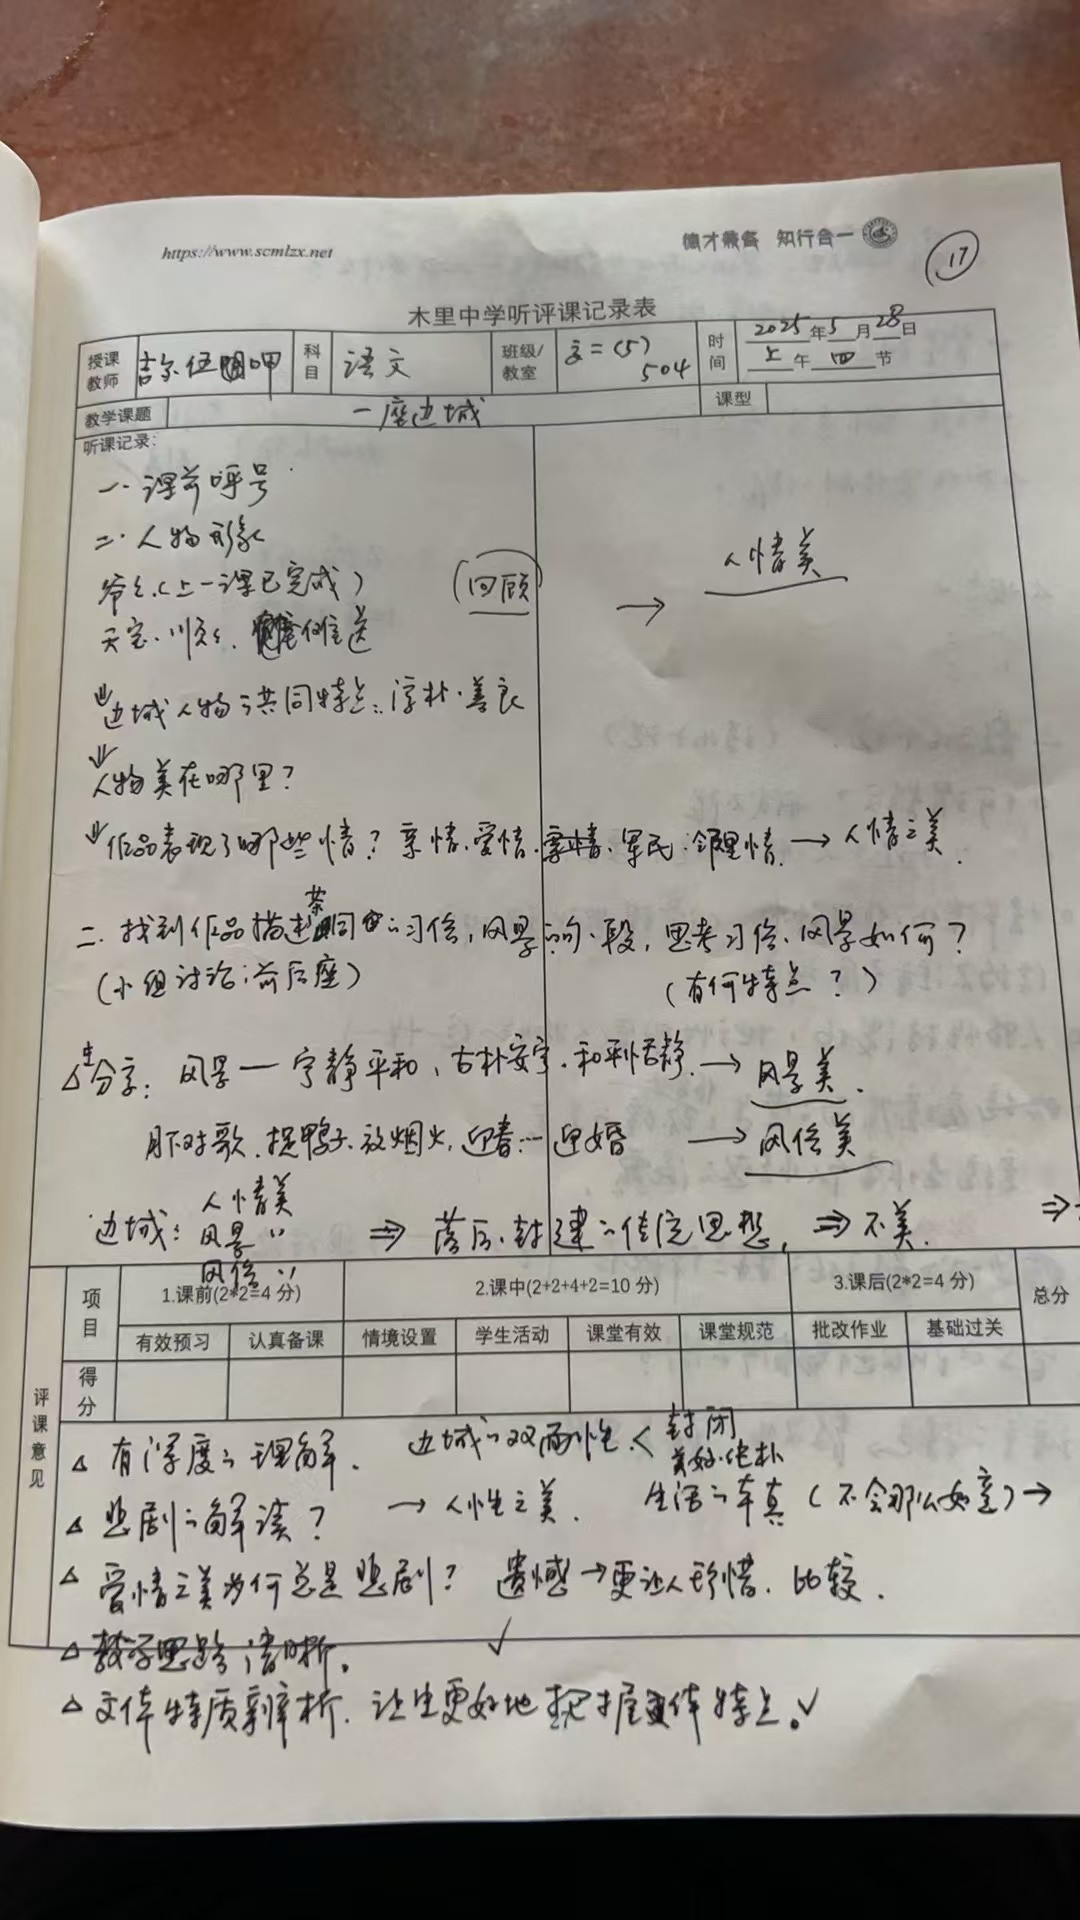 https://www.scmlzx.net
德才兼备 知行合一
17
木里中学听评课记录表
授课教师 吉尔伍呷 科目 语文 班级/教室 高二(5) 504 时间 2025年5月28日
上午 四 节
教学课题 一座边城 课型
听课记录:
一. 课前呼号
二. 人物形象
爷爷(上一课已完成) (回顾) → 人情美
天宝、顺顺、傩送
⇓边城人物的共同特点:淳朴·善良
⇓人物美在哪里?
⇓作品表现了哪些情?亲情、爱情、军民、邻里情 → 人情之美.
二. 找到作品描述茶峒的习俗,风景的句、段,思考习俗、风景如何?
(小组讨论:前后座) (有何特点?)
△生分享: 风景— 宁静平和、古朴安宁、和平恬静. → 风景美.
月下对歌、捉鸭子、放烟火、迎春… 迎婚 → 风俗美
边城: 人情美
风景〃 ⇒ 落后、封建的传统思想, ⇒ 不美. ⇒
风俗〃
项目 1.课前(2*2=4分) 2.课中(2+2+4+2=10分) 3.课后(2*2=4分) 总分
有效预习 认真备课 情境设置 学生活动 课堂有效 课堂规范 批改作业 基础过关
得分
评课意见
△ 有深度的理解. 边城的双面性 < 封闭
美好·纯朴
△ 悲剧的解读? → 人性之美. 生活的本真(不会那么如意)→
△ 爱情之美为何总是悲剧? 遗憾→更让人珍惜. 比较.
△ 教学思路清晰. ✓
△ 文体特质辨析. 让生更好地把握文体特点。✓